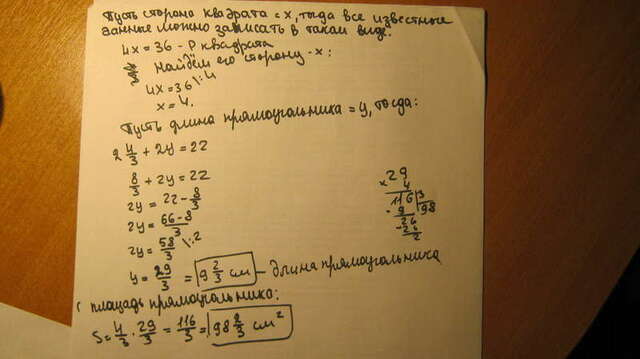 Пусть сторона квадрата = x, тогда все известные
данные можно записать в таком виде:
4x = 36 - P квадрата
Найдём его сторону - x:
4x = 36 |:4
x = 4.
Пусть длина прямоугольника = y, тогда:
2 4/3 + 2y = 22
8/3 + 2y = 22
2y = 22 - 8/3
2y = 66-8/3
2y = 58/3 |:2
y = 29/3 = 9 2/3 см - длина прямоугольника
площадь прямоугольника:
S = 4/3 · 29/3 = 116/3 = 98 2/3 см²
29
× 4
116 | 3
- 9 | 98
26
- 26
2